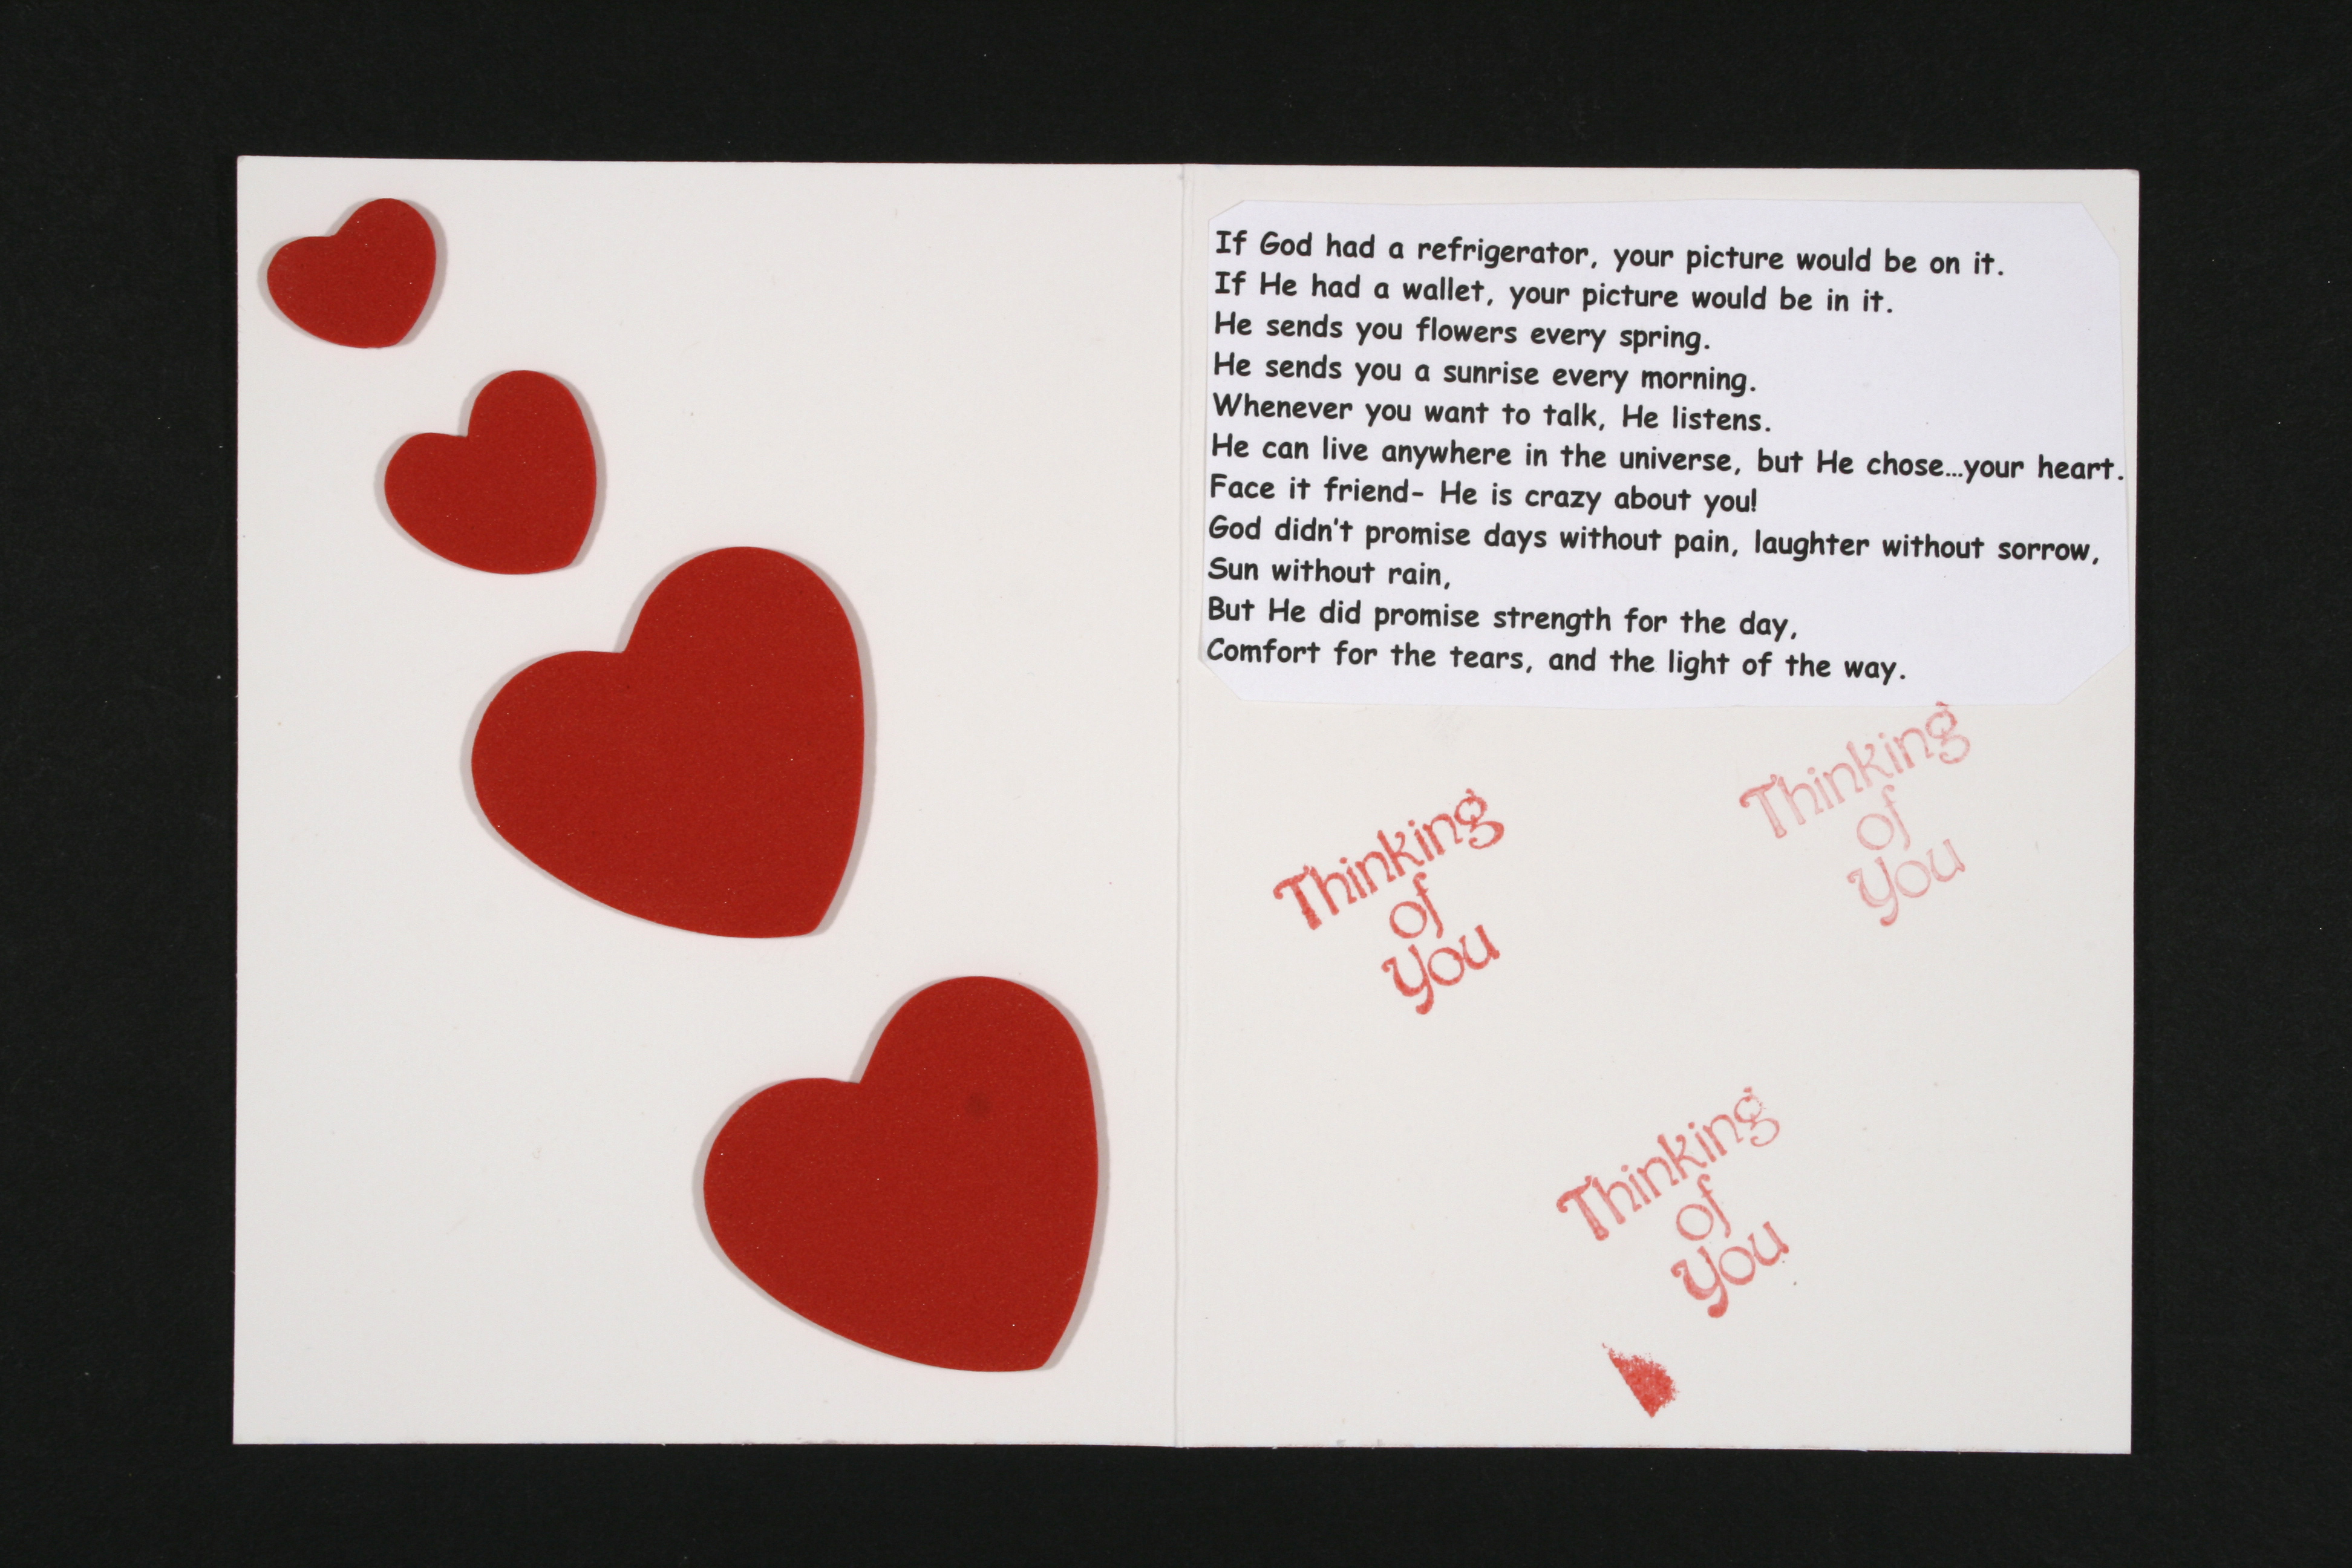 If God had a refrigerator, your picture would be on it.
If He had a wallet, your picture would be in it.
He sends you flowers every spring.
He sends you a sunrise every morning.
Whenever you want to talk, He listens.
He can live anywhere in the universe, but He chose...your heart.
Face it friend- He is crazy about you!
God didn't promise days without pain, laughter without sorrow,
Sun without rain,
But He did promise strength for the day,
Comfort for the tears, and the light of the way.
Thinking
of
You
Thinking
of
You
Thinking
of
You